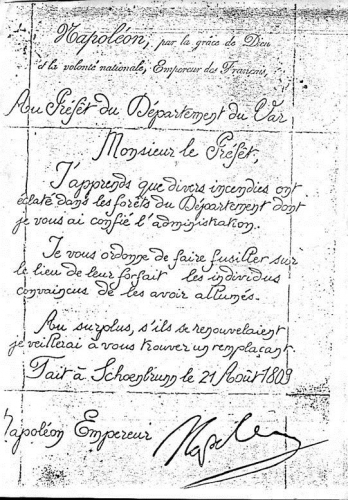 Napoléon, par la grâce de Dieu
et la volonté nationale, Empereur des Français,
Au Préfet du Département du Var
Monsieur le Préfet,
J'apprends que divers incendies ont
éclaté dans les forêts du Département dont
je vous ai confié l'administration.
Je vous ordonne de faire fusiller sur
le lieu de leur forfait les individus
convaincus de les avoir allumés.
Au surplus, s'ils se renouvelaient
je veillerai à vous trouver un remplaçant.
Fait à Schoenbrunn le 21 Août 1809
Napoléon Empereur